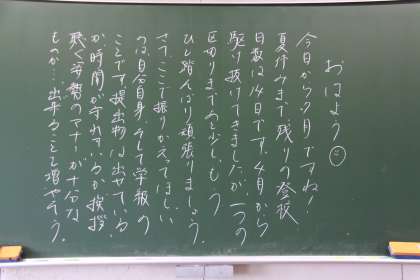 おはよう☺
今日から7月ですね！
夏休みまで残りの登校
日数は14日です。4月から
駆け抜けてきましたが、一つの
区切りまであと少し。もう
ひと踏んばり頑張りましょう。
さて、ここで振りかえってほしい
のは自分自身、そして学級の
ことです。提出物は出せている
か、時間が守れているか、挨拶
聴く姿勢のマナーが十分な
ものか…出来ることを増やそう。